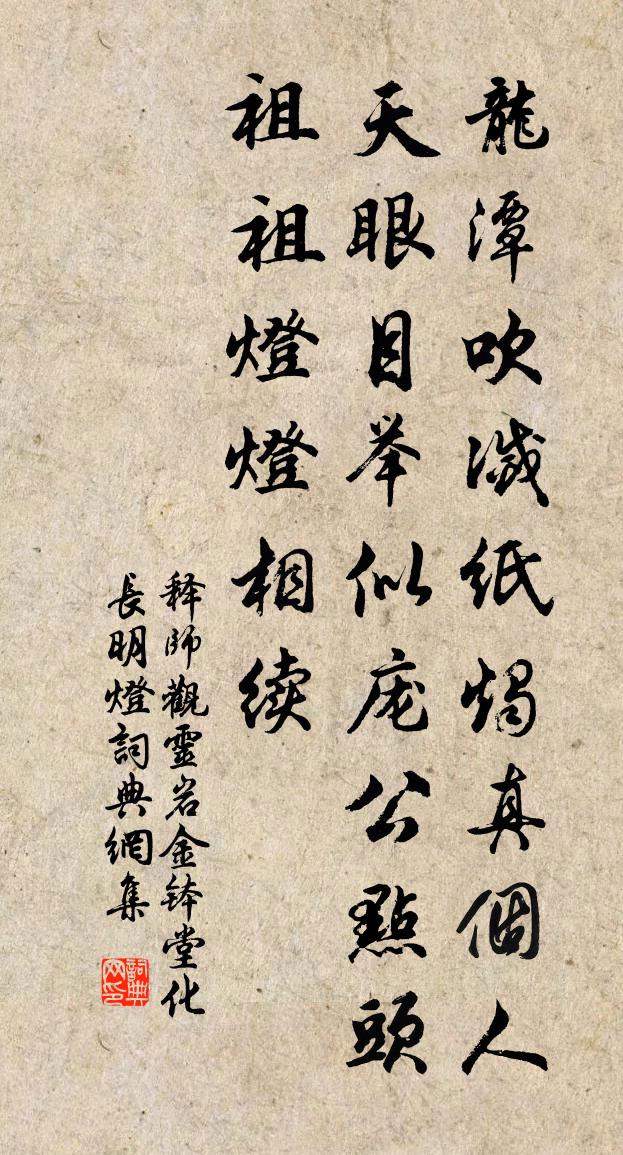 龍潭吹滅紙燭真個人
天眼目举似庞公點頭
祖祖燈燈相续
释師觀靈岩金钵堂化
長明燈詞典網集
詞典网印